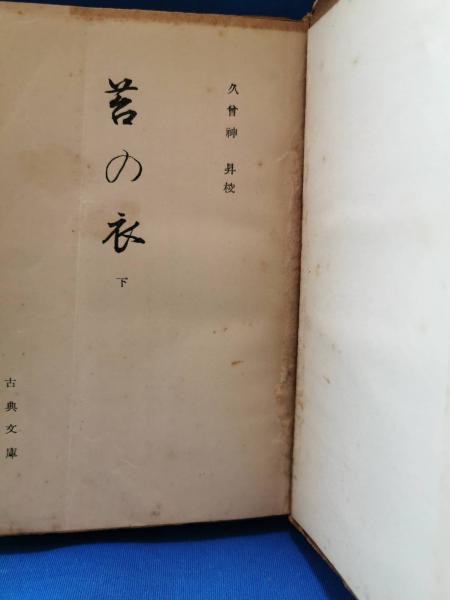 久曾神 昇校
苔の衣
下
古典文庫